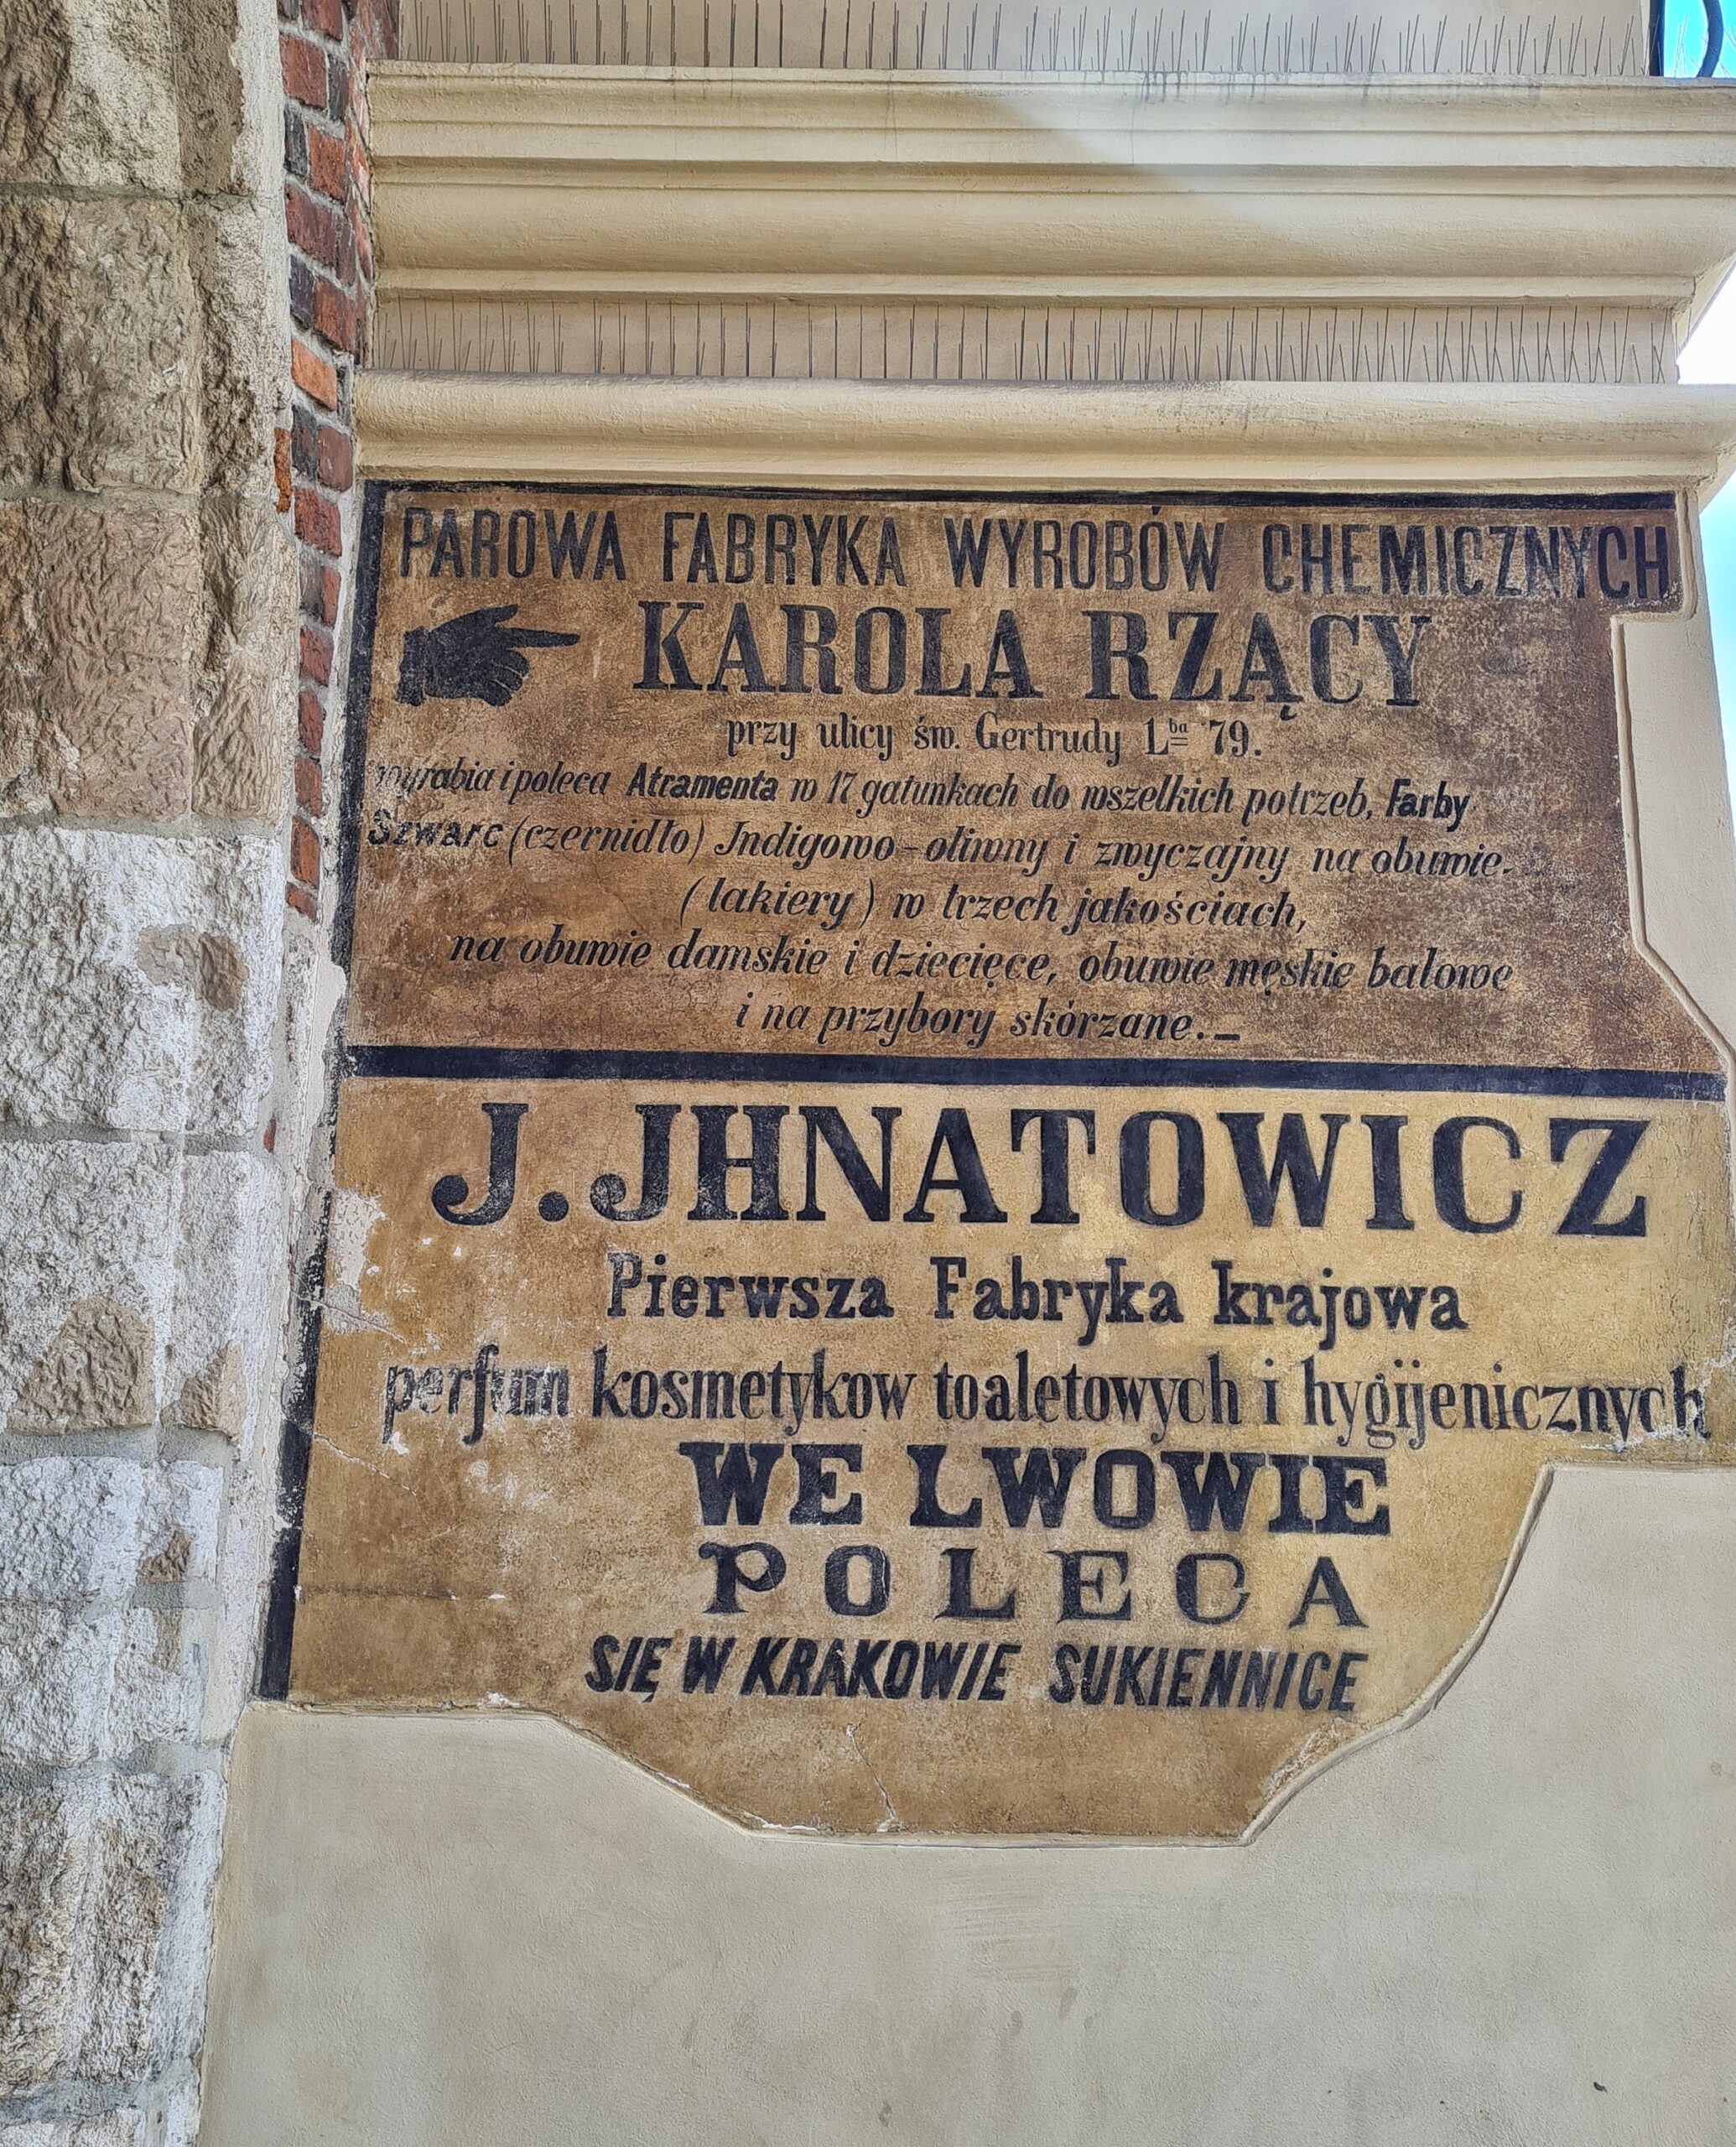 PAROWA FABRYKA WYROBÓW CHEMICZNYCH
KAROLA RZĄCY
przy ulicy św. Gertrudy Lba 79.
wyrabia i poleca Atramenta w 17 gatunkach do wszelkich potrzeb, Farby
Szwarc (czernidło) Jndigowo-oliwny i zwyczajny na obuwie.
(lakiery) w trzech jakościach,
na obuwie damskie i dziecięce, obuwie męskie balowe
i na przybory skórzane._
J. JHNATOWICZ
Pierwsza Fabryka krajowa
perfum kosmetykow toaletowych i hygijenicznych
WE LWOWIE
POLECA
SIĘ W KRAKOWIE SUKIENNICE